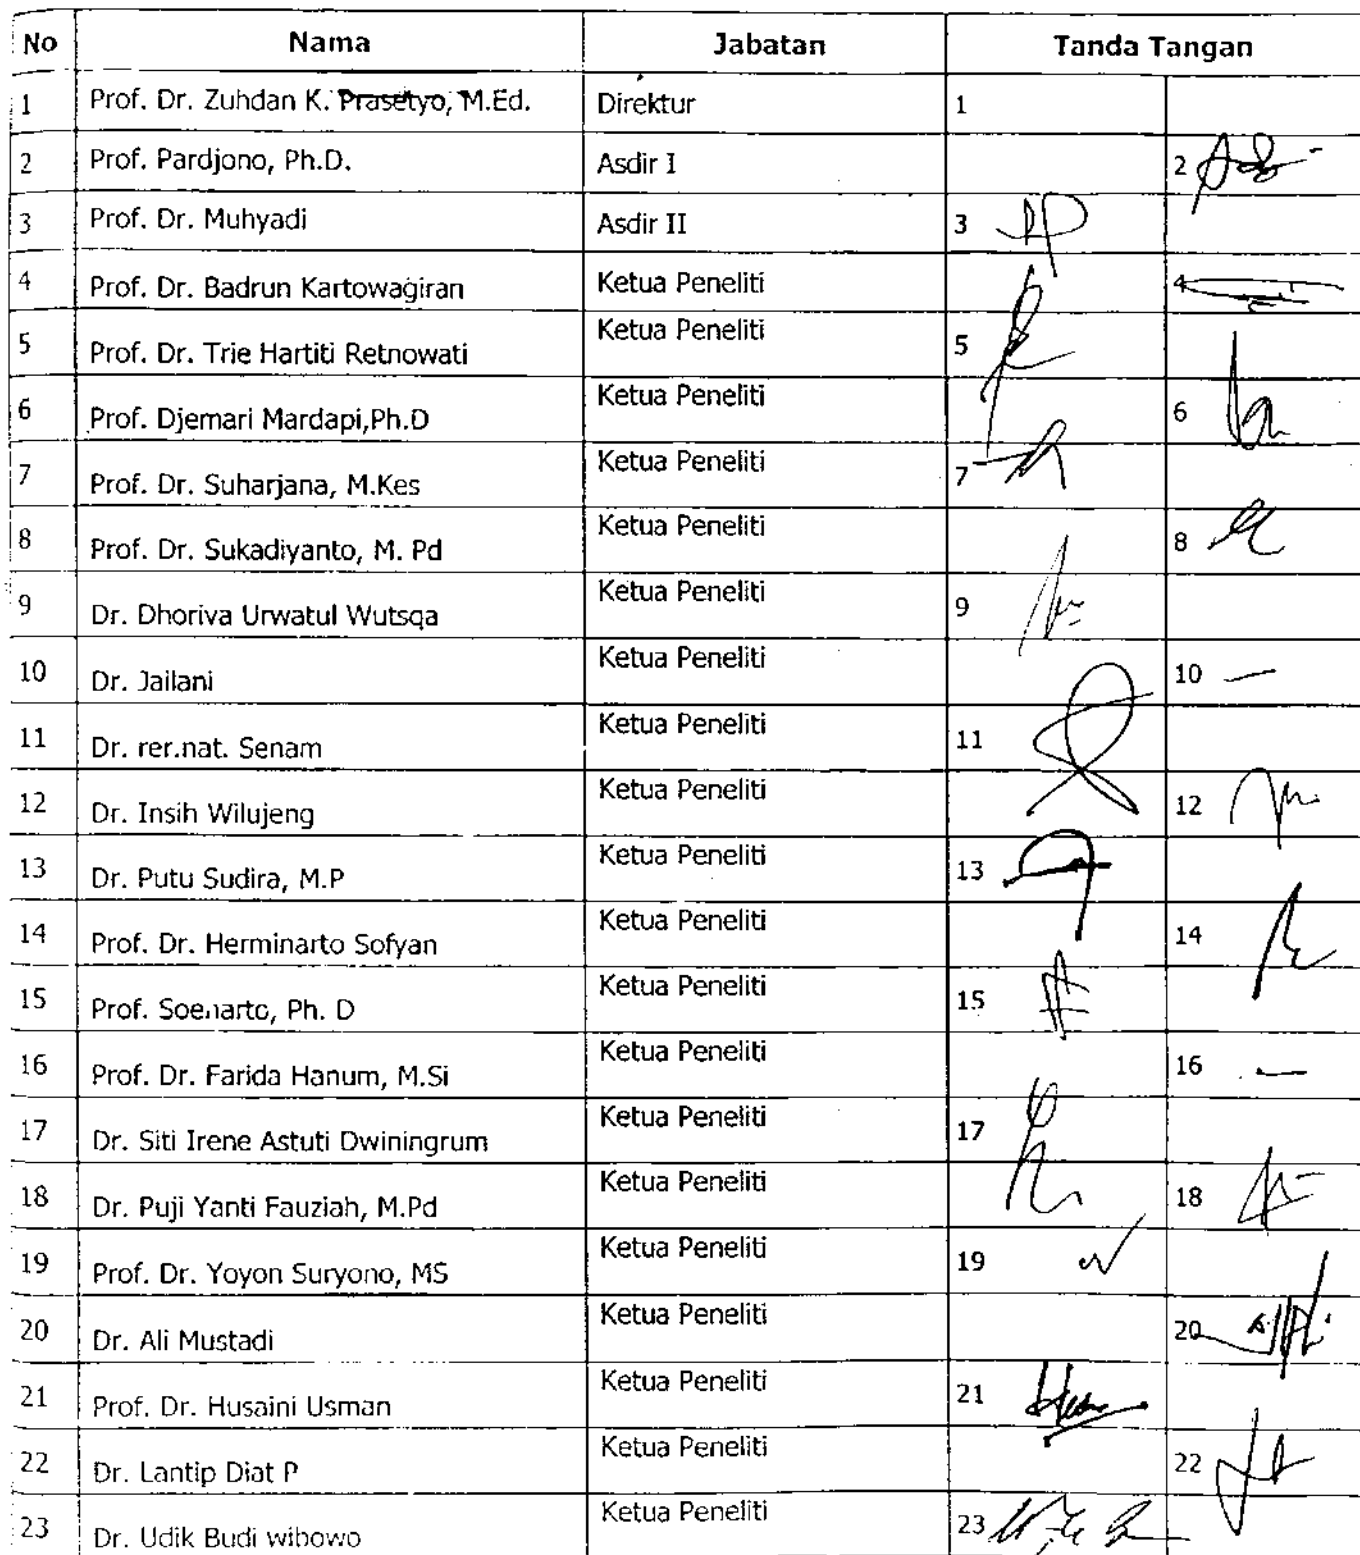 No Nama Jabatan Tanda Tangan
1 Prof. Dr. Zuhdan K. Prasetyo, M.Ed. Direktur 1
2 Prof. Pardjono, Ph.D. Asdir I 2
3 Prof. Dr. Muhyadi Asdir II 3
4 Prof. Dr. Badrun Kartowagiran Ketua Peneliti 4
5 Prof. Dr. Trie Hartiti Retnowati Ketua Peneliti 5
6 Prof. Djemari Mardapi,Ph.D Ketua Peneliti 6
7 Prof. Dr. Suharjana, M.Kes Ketua Peneliti 7
8 Prof. Dr. Sukadiyanto, M. Pd Ketua Peneliti 8
9 Dr. Dhoriva Urwatul Wutsqa Ketua Peneliti 9
10 Dr. Jailani Ketua Peneliti 10 —
11 Dr. rer.nat. Senam Ketua Peneliti 11
12 Dr. Insih Wilujeng Ketua Peneliti 12
13 Dr. Putu Sudira, M.P Ketua Peneliti 13
14 Prof. Dr. Herminarto Sofyan Ketua Peneliti 14
15 Prof. Soenarto, Ph. D Ketua Peneliti 15
16 Prof. Dr. Farida Hanum, M.Si Ketua Peneliti 16 —
17 Dr. Siti Irene Astuti Dwiningrum Ketua Peneliti 17
18 Dr. Puji Yanti Fauziah, M.Pd Ketua Peneliti 18
19 Prof. Dr. Yoyon Suryono, MS Ketua Peneliti 19
20 Dr. Ali Mustadi Ketua Peneliti 20
21 Prof. Dr. Husaini Usman Ketua Peneliti 21
22 Dr. Lantip Diat P Ketua Peneliti 22
23 Dr. Udik Budi wibowo Ketua Peneliti 23